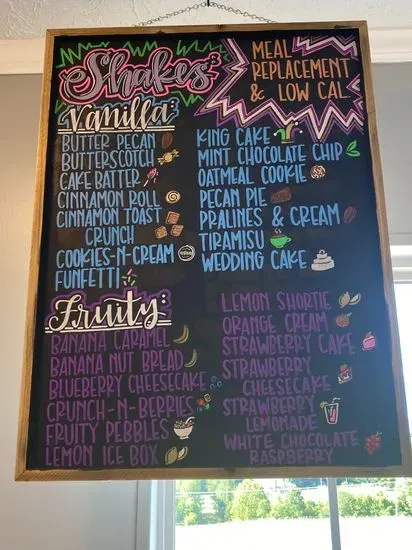 Shakes:
MEAL
REPLACEMENT
& LOW CAL
Vanilla:
BUTTER PECAN
BUTTERSCOTCH
CAKE BATTER
CINNAMON ROLL
CINNAMON TOAST
CRUNCH
COOKIES-N-CREAM
FUNFETTI
KING CAKE
MINT CHOCOLATE CHIP
OATMEAL COOKIE
PECAN PIE
PRALINES & CREAM
TIRAMISU
WEDDING CAKE
Fruity:
BANANA CARAMEL
BANANA NUT BREAD
BLUEBERRY CHEESECAKE
CRUNCH-N-BERRIES
FRUITY PEBBLES
LEMON ICE BOX
LEMON SHORTIE
ORANGE CREAM
STRAWBERRY CAKE
STRAWBERRY
CHEESECAKE
STRAWBERRY
LEMONADE
WHITE CHOCOLATE
RASPBERRY